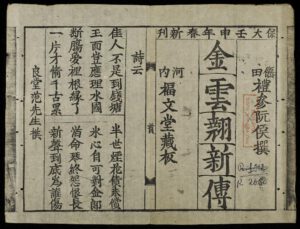 保大壬申年春新刊
僊田禮參阮侯撰
金雲翹新傳
河內福文堂藏板
詩云
佳人不是到錢塘 半世煙花債未償
玉面豈應埋水國 氷心自可對金郎
斷腸夢裡根緣了 薄命琴終怨恨長
一片才情千古累 新聲到底為誰傷
良堂范先生撰